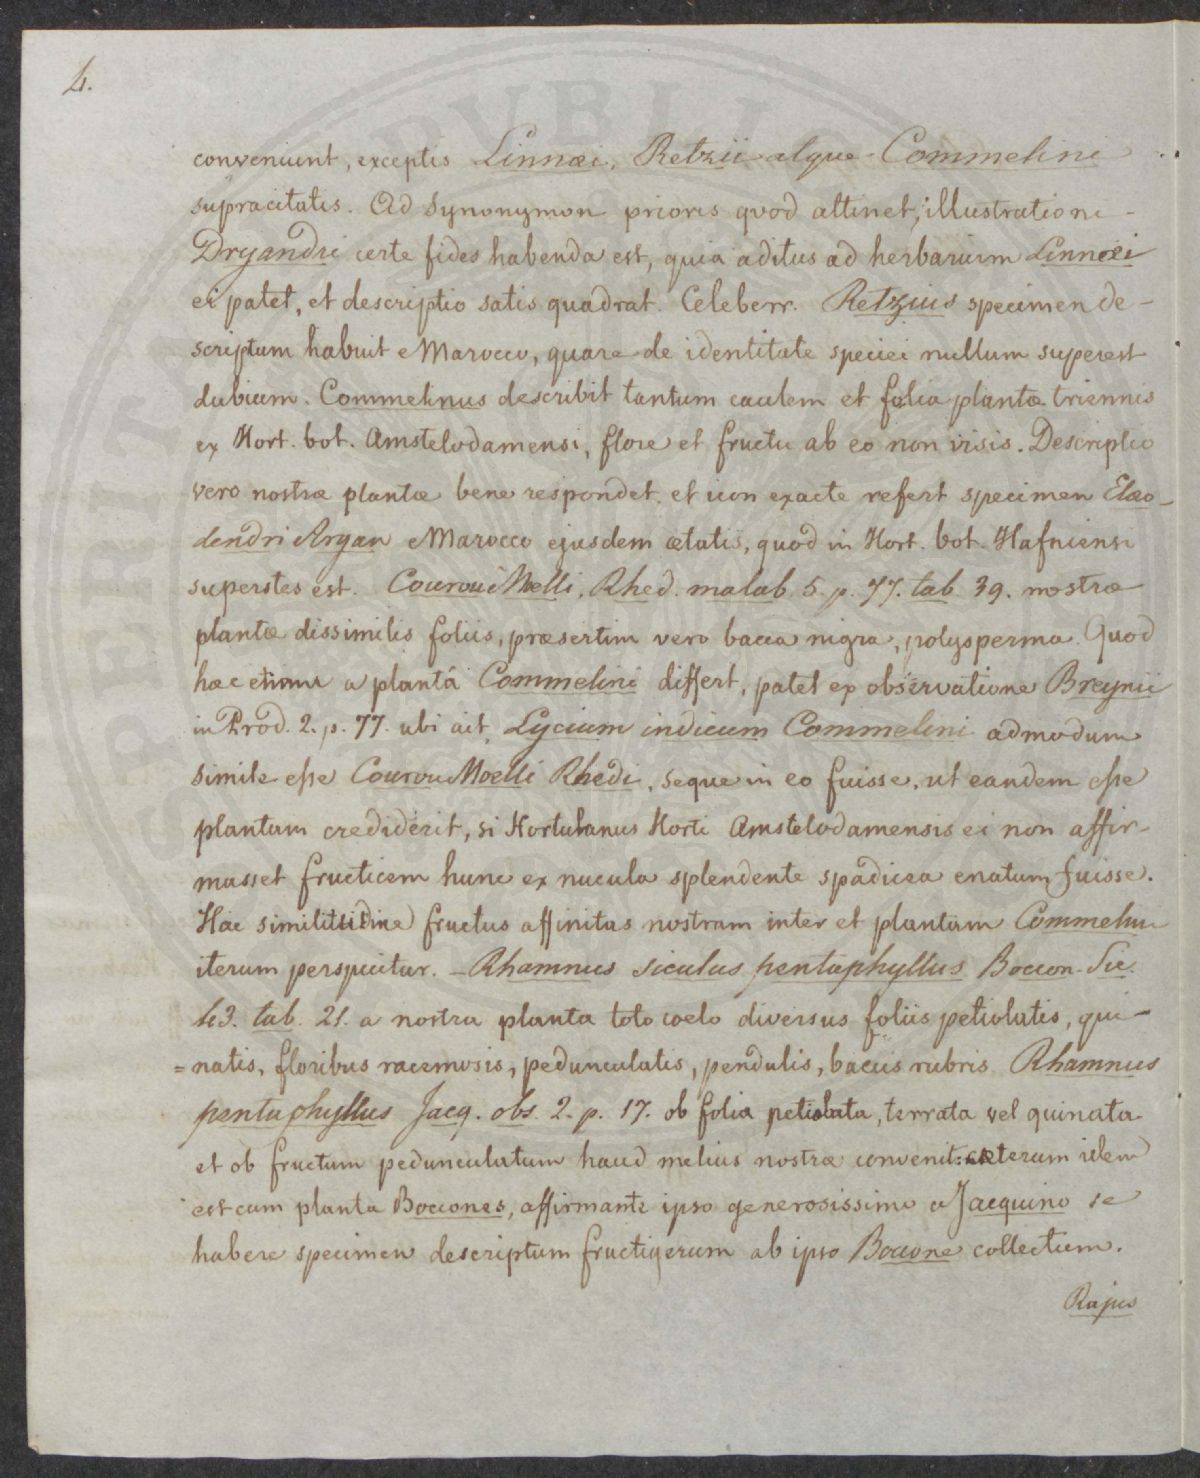 4.
conveniunt, exceptis Linnæi, Retzii atque Commelini
supracitatis. Ad Synonymon prioris qvod attinet, illustrationi
Dryandri certe fides habenda est, quia aditus ad herbarium Linnæi
ei patet, et descriptio satis quadrat. Celeberr. Retzius specimen de-
scriptum habuit e Marocco, quare de identitate speciei nullum superest
dubium. Commelinus describit tantum caulem et folia plantæ triennis
ex Hort. bot. Amstelodamensi, flore et fructu ab eo non visis. Descriptio
vero nostræ plantæ bene respondet, et icon exacte refert specimen Elæo-
dendri Argan e Marocco ejusdem ætatis, quod in Hort. bot. Hafniensi
superstes est. Courou Moelli, Rhed. malab. 5. p. 77. tab 39. nostræ
plantæ dissimilis foliis, præsertim vero bacca nigra, polysperma. Quod
hæc etiam a plantâ Commelini differt, patet ex observatione Breynii
in Prod. 2. p. 77. ubi ait, Lycium indicum Commelini admodum
simile esse Courou Moelli Rhedi, seque in eo fuisse, ut eandem esse
plantam crediderit, si Hortulanus Horti Amstelodamensis ei non affir-
masset fructicem hunc ex nucula splendente spadicea enatum fuisse.
Hac similitudine fructus affinitas nostram inter et plantam Commelini
iterum perspicitur. - Rhamnus siculus pentaphyllus Boccon. Sic.
43. tab. 21. a nostra planta toto coelo diversus foliis petiolatis, qui-
=natis, floribus racemosis, pedunculatis, pendulis, baccis rubris. Rhamnus
pentaphyllus Jacq. obs. 2. p. 17. ob folia petiolata, ternata vel quinata
et ob fructum pedunculatum haud melius nostræ convenit: cæterum idem
est cum planta Boccones, affirmante ipso generosissimo a Jacquino se
habere specimen descriptum fructigerum ab ipso Boccone collectum.
Rajus